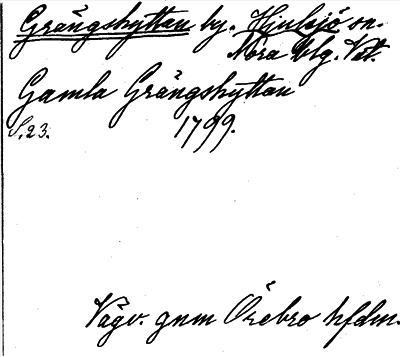 Grängshyttan by. Hjulsjö sn.
Nora blg. Vst.
Gamla Grängshyttan
S. 23. 1799.
Vägv. gnm Örebro hfdm.